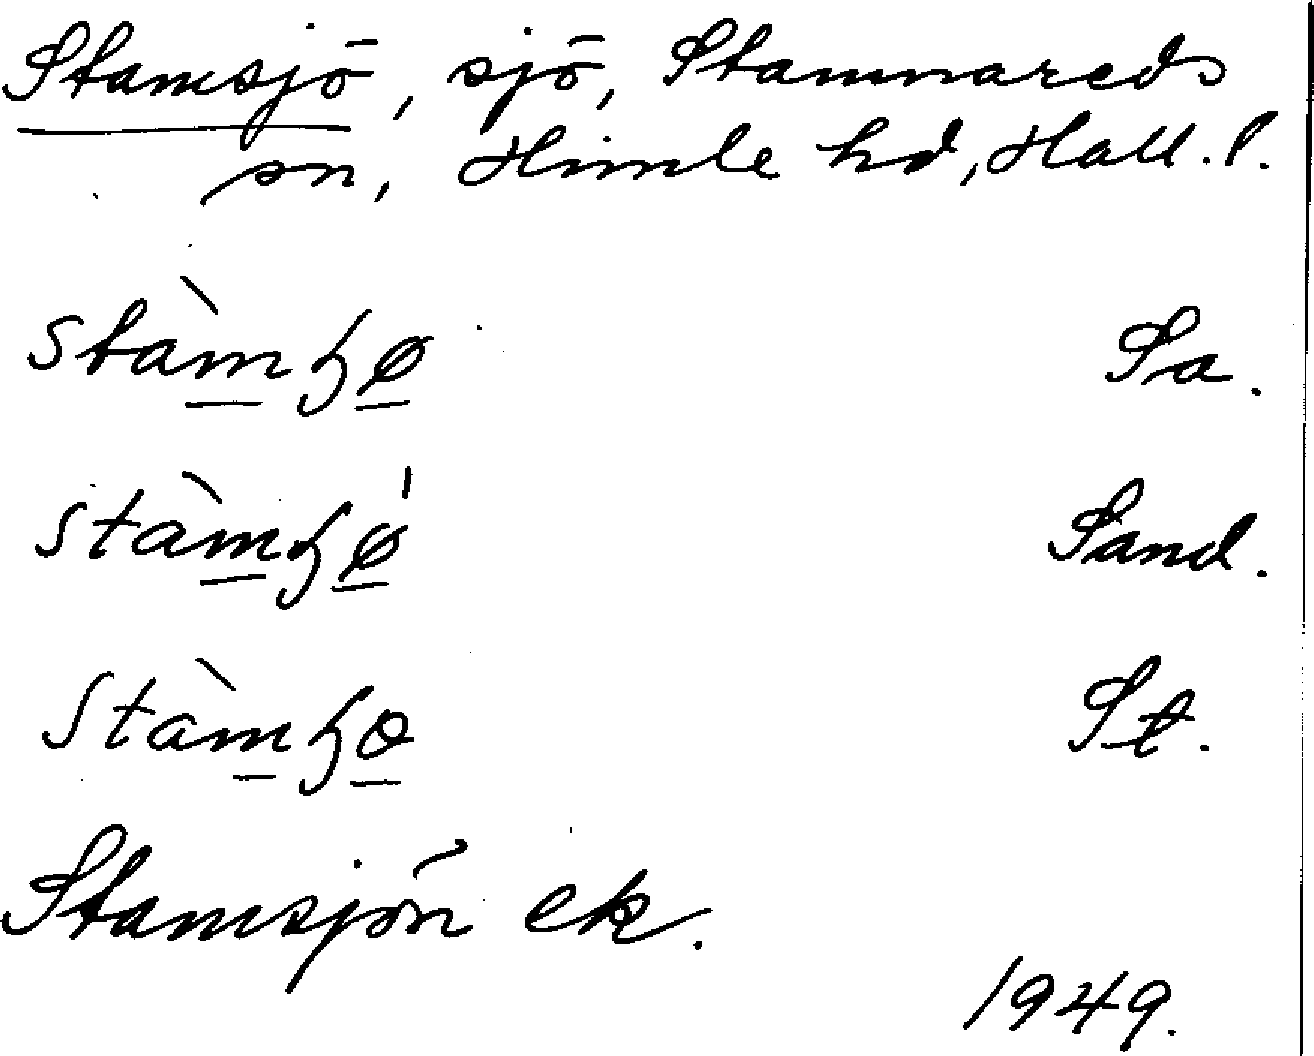 Stamsjö, sjö, Stamnareds
sn, Himle hd, Hall. l.
Sa.
Sand.
St.
Stamsjön ek.
1949.